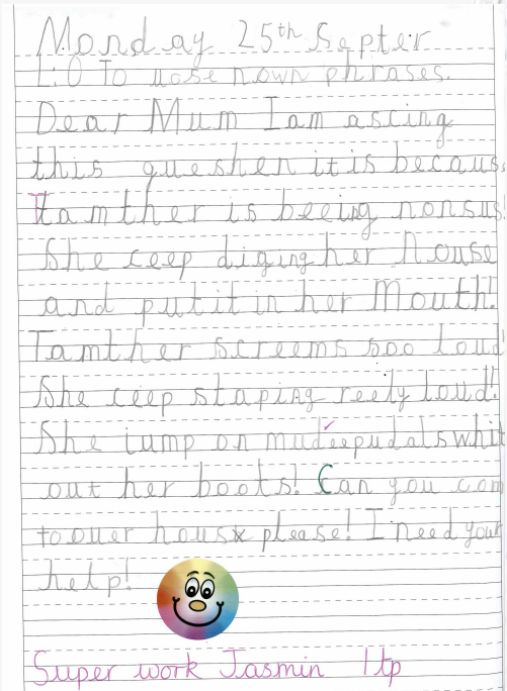 Monday 25th Septer
L:O To uose nown phrases.
Dear Mum I am ascing
this queshen it is becaus
Tamther is beeing nonsus!
She ceep diging her Nouse
and put it in her Mouth!
Tamther screems soo loud
She ceep staping reely loud!
She iump on mudee pudals whit
out her boots! Can you com
to ouer hous please! I need your
help!
Super work Jasmin 1tp